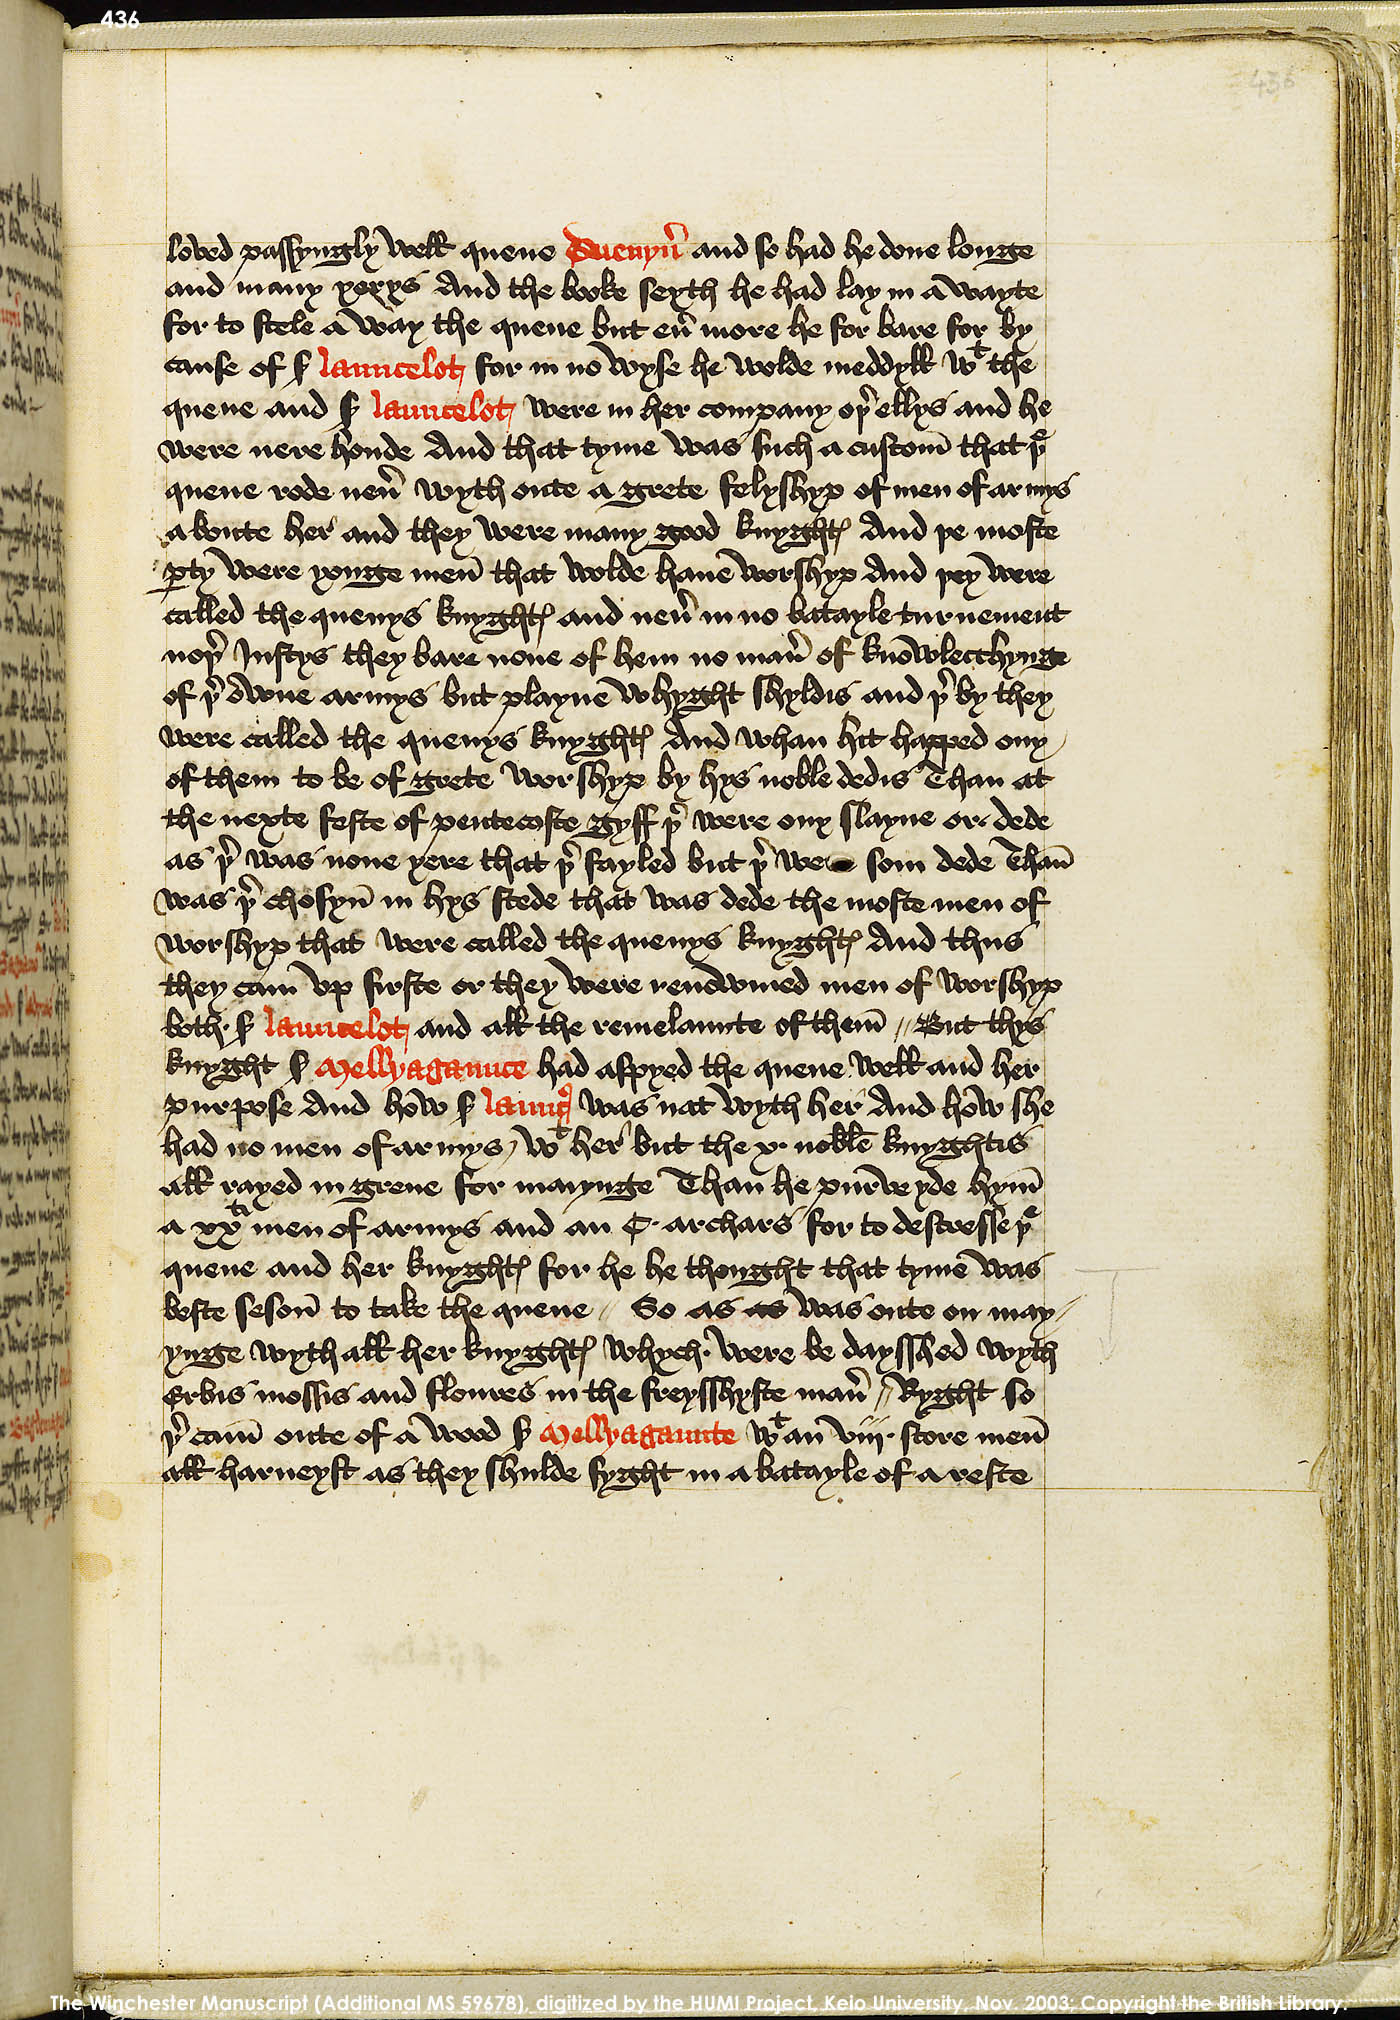 436
436
loved passyngly well quene Guenyũ and so had he done longe
and many yerys And the booke seyth he had lay in a wayte
for to stele a way the quene but eũ more he for bare for by
cause of ẜ launcelot for in no wyse he wolde meddyll wᵗ the
quene and ẜ launcelot were in her company oþ͛ ellys and he
were nere honde And that tyme was such a custom̄ that þᵉ
quene rode neũ wyth oute a grete felyshyp of men of armys
a boute her and they were many good knyghtꝭ And þe moste
ꝑty were yonge men̄ that wolde haue worshyp And þey were
called the quenys knyghtꝭ and neũ in no batayle turnement
noþ͛ Justys they bare none of hem no man͛ of knowlecchynge
of þ͛ owne armys but playne whyght shyldis and þ͛ by they
were called the quenys knyghtꝭ And whan hit happed ony
of them to be of grete worshyp by hys noble dedis Than at
the nexte feste of pentecoste gyff þ͛ were ony slayne or dede
as þ͛ was none yere that þ͛ fayled but þ͛ we som dede Than̄
was þ͛ chosyn̄ in hys stede that was dede the moste men of
worshyp that were called the quenys knyghtꝭ And thus
they cam vp firste or they were renowmed men of worshyp
both ẜ launcelot and all the remelaunte of them̄ // But thys
knyght ẜ Mellyagaunce had aspyed the quene well and her
purpose And how ẜ launꝯ was nat wyth her And how she
had no men of armys wᵗ her but the x· noble knyghtis
all rayed in grene for maiynge Than he purveyde hym̄
a xxᵗⁱ men of armys and an C· archars for to destresse þᵉ
quene and her knyghtꝭ for he he thought that tyme was
beste seson̄ to take the quene // So as as was oute on may
ynge wyth all her knyghtꝭ whych· were be daysshed wyth
Erbis mossis and floures in the freysshyste man͛ // Ryght so
þ͛ cam̄ oute of a wood ẜ Mellyagaunte wᵗ an viij· score men̄
all harneyst as they shulde fyght in a batayle of a reste
The Winchester Manuscript (Additional MS 59678), digitized by the HUMI Project, Keio University, Nov. 2003; Copyright the British Library.